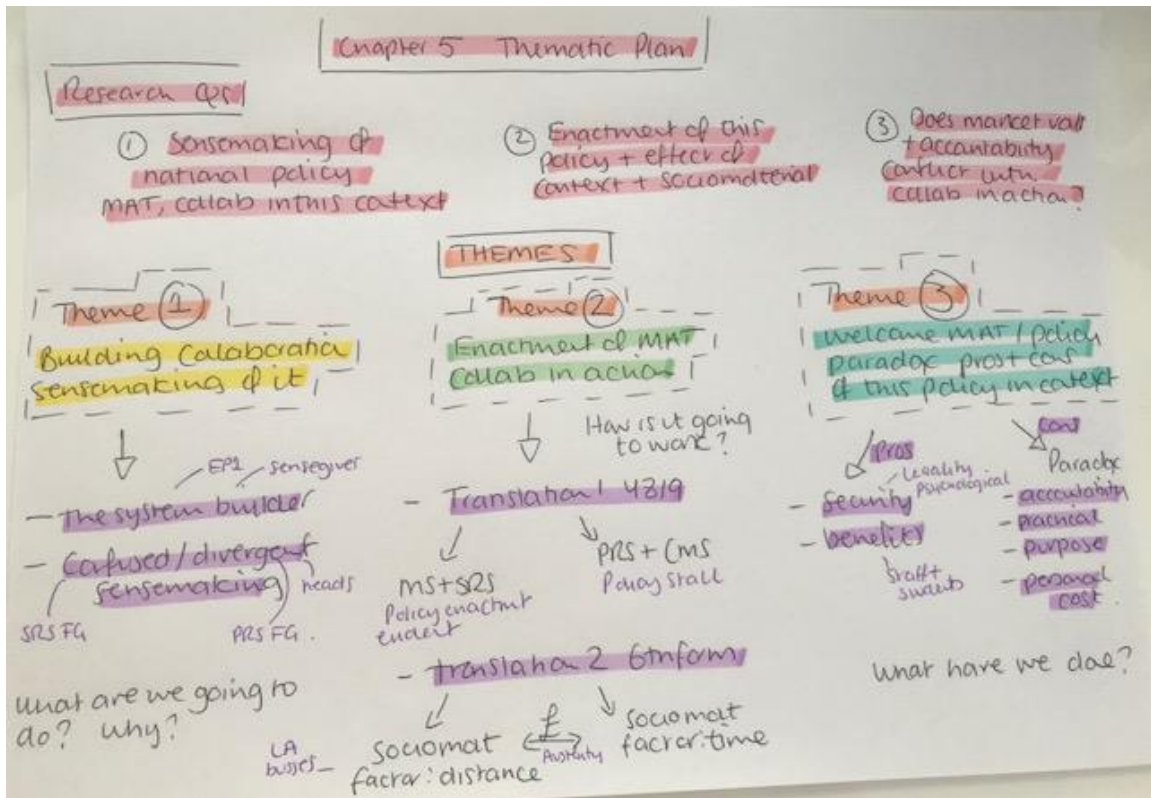 Chapter 5 Thematic Plan
Research Qs
① Sensemaking of
national policy
MAT, collab in this context
② Enactment of this
policy + effect of
context + sociomaterial
③ Does market vals
+ accountability
conflict with
collab in action?
THEMES
Theme ①
Building Collaboration
sensemaking of it
EP1
sensegiver
- The system builder
- Confused/divergent
sensemaking
heads
SRS FG
PRS FG.
What are we going to
do? Why?
Theme ②
Enactment of MAT
collab in action
How is it going
to work?
- Translation 1
MS+SRS
Policy enactment
evident
PRS + CMS
Policy stall
- translation 2 6th form
LA
busses
sociomat
factor: distance
£
Austerity
sociomat
factor: time
Theme ③
Welcome MAT / policy
paradox pros + cons
of this policy in context
Pros
Legality
psychological
- Security
- benefits
Staff +
students
cons
Paradox
- accountability
- practical
- purpose
- personal
cost.
What have we done?